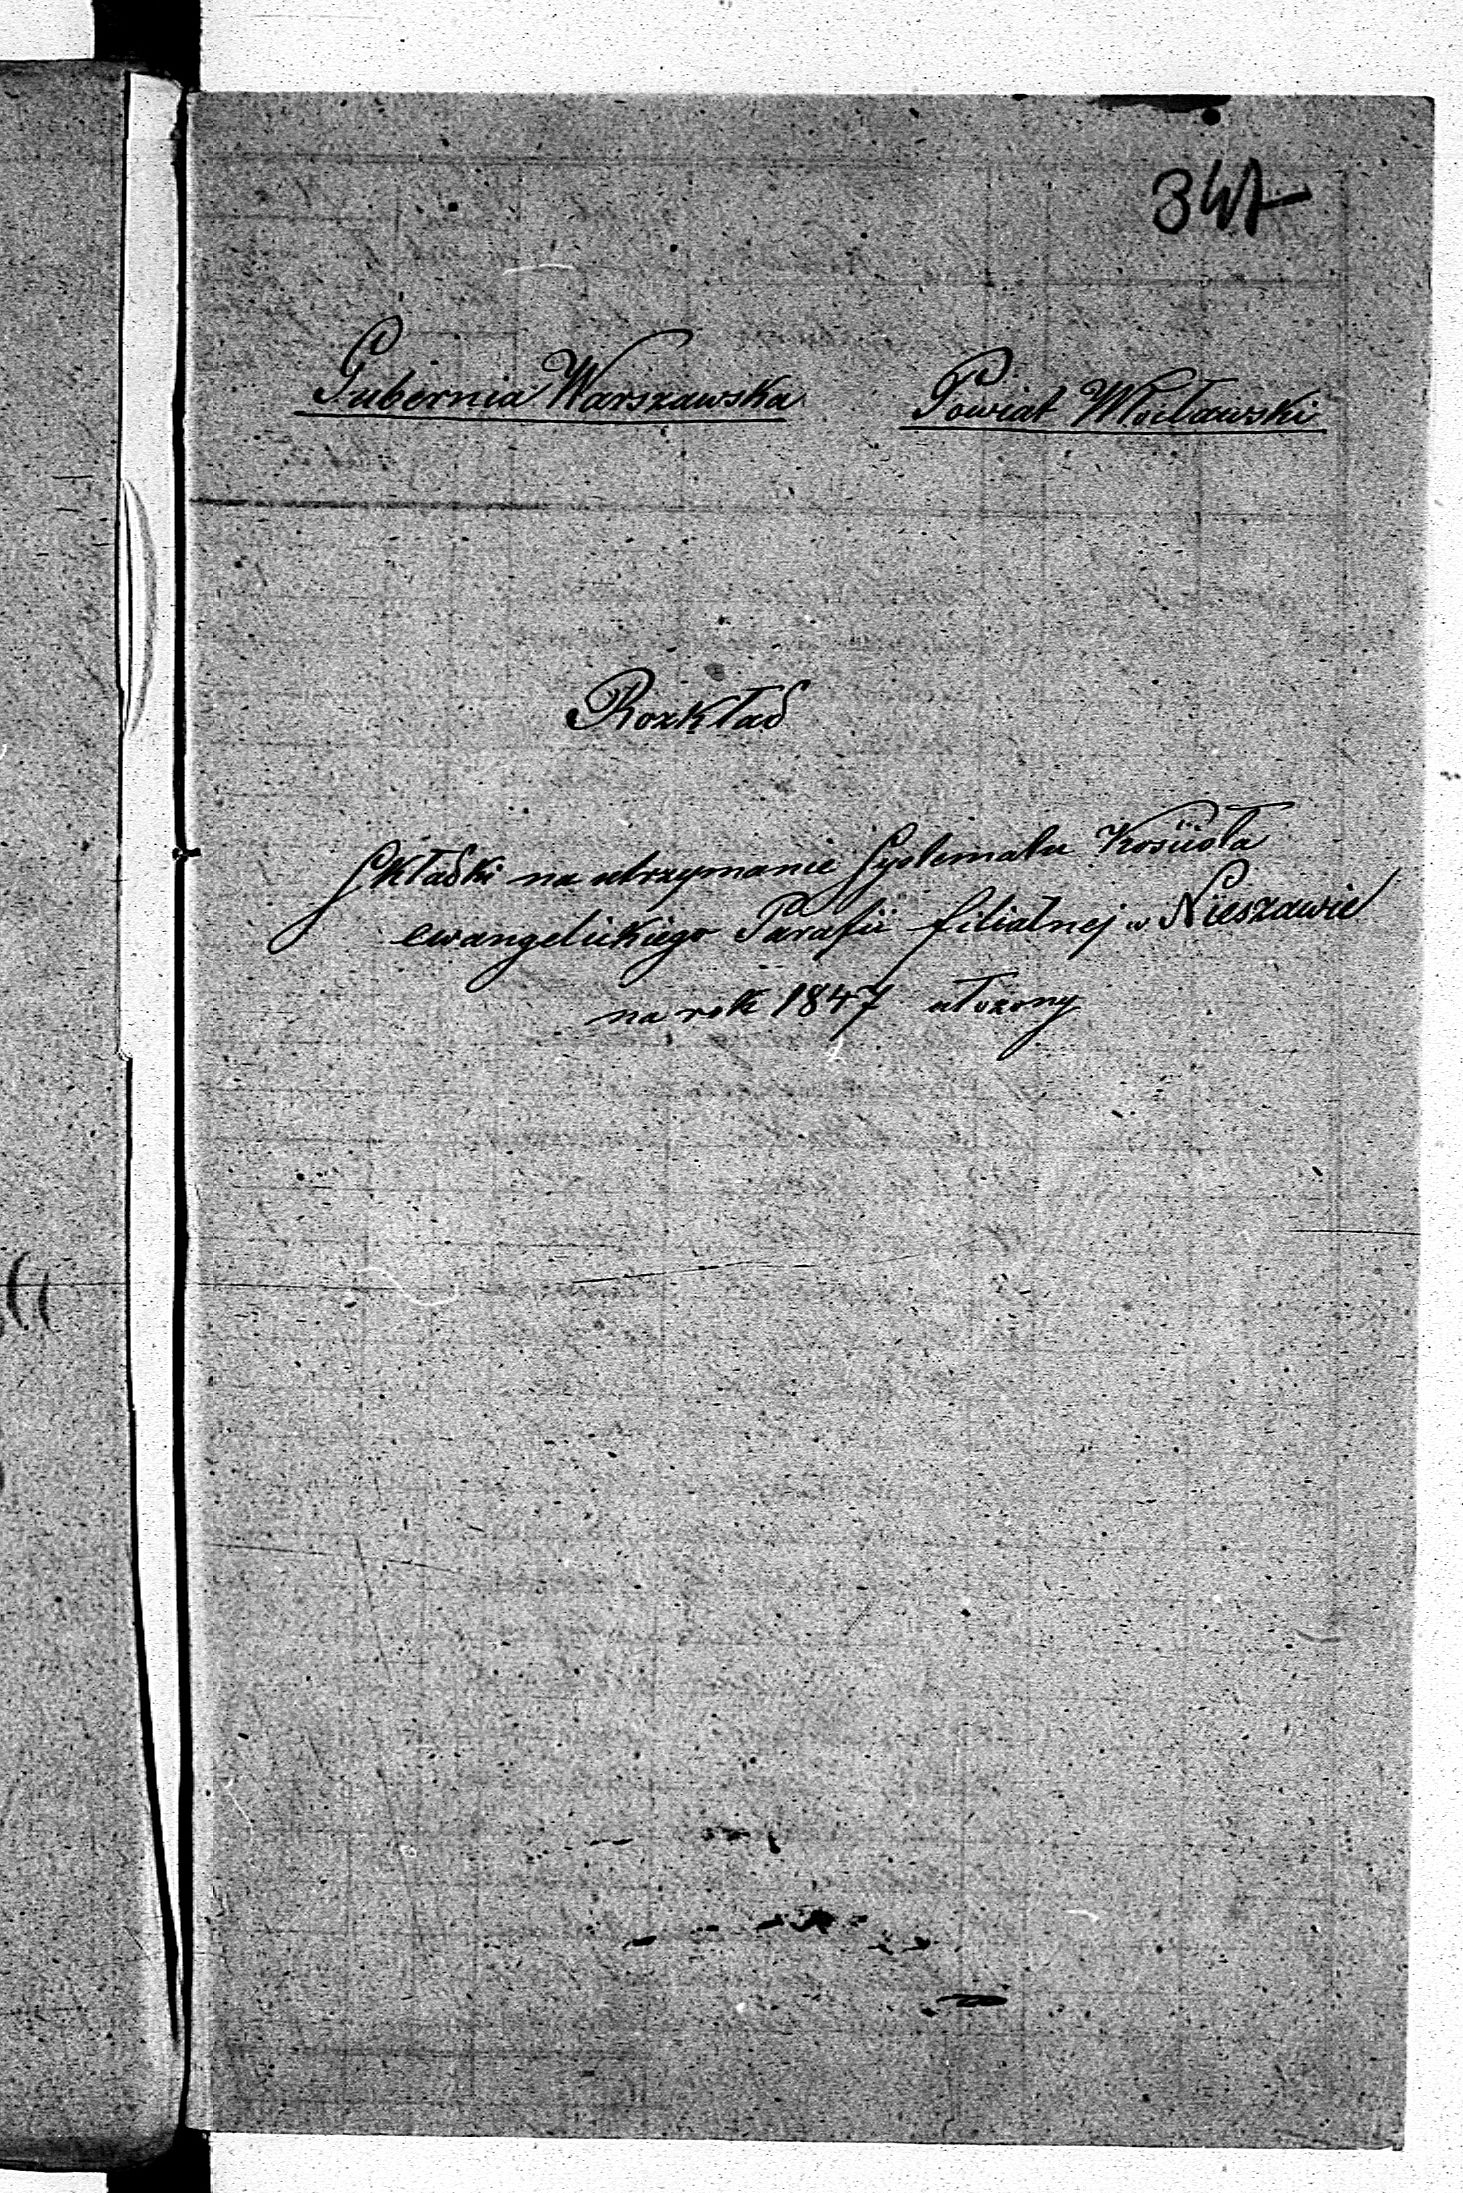 347
Gubernia Warszawska Powiat Włocławski
Rozkład
Składki na utrzymanie Systematu Kościoła
ewangelickiego Parafii filialnej w Nieszawie
na rok 1847 ułożony